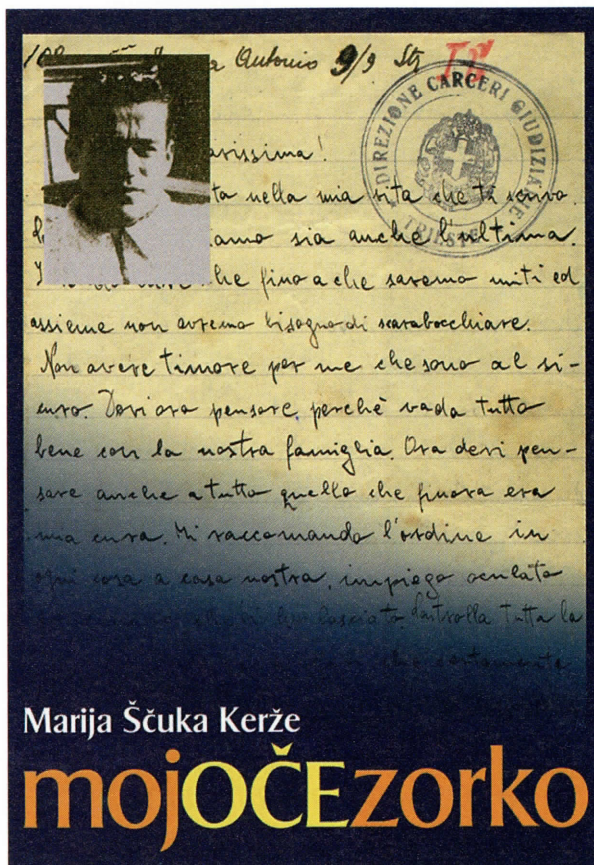 Antonio 9/9 Stz IV
DIREZIONE CARCERI GIUDIZIARIE
TRIESTE
arissima!
ta nella mia vita che ti scrivo.
amo sia anche l'ultima.
he fino a che saremo uniti ed
assieme non avremo bisogno di scarabocchiare.
Non avere timore per me che sono al si-
curo. Devi ora pensare, perchè vada tutto
bene con la nostra famiglia. Ora devi pen-
sare anche a tutto quello che finora era
mia cura. Mi raccomando l'ordine in
ogni cosa a casa nostra, impiego oculato
lasciato. tutta la
Marija Ščuka Kerže
mojOČEzorko